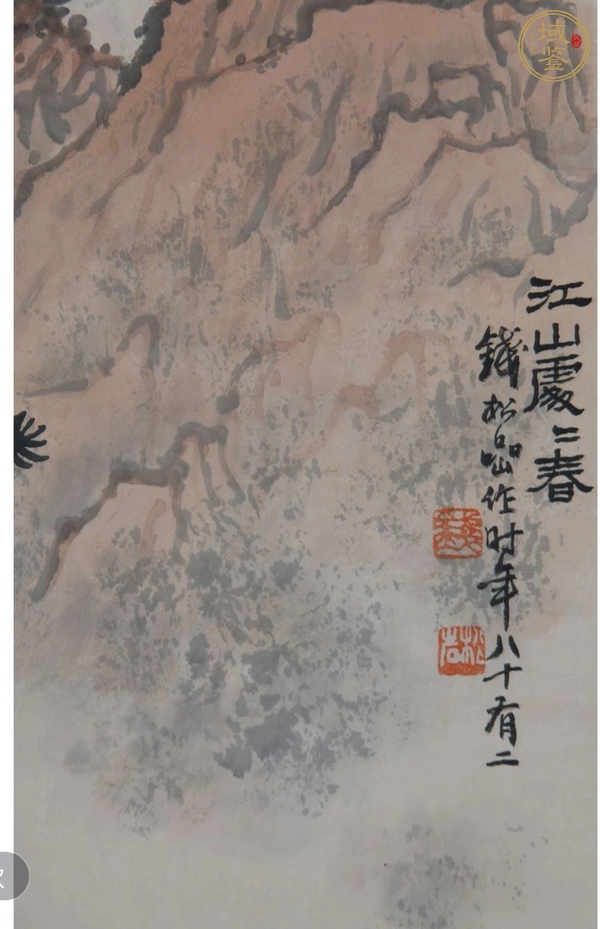 域鉴
江山處〻春
錢松喦作时年八十有二